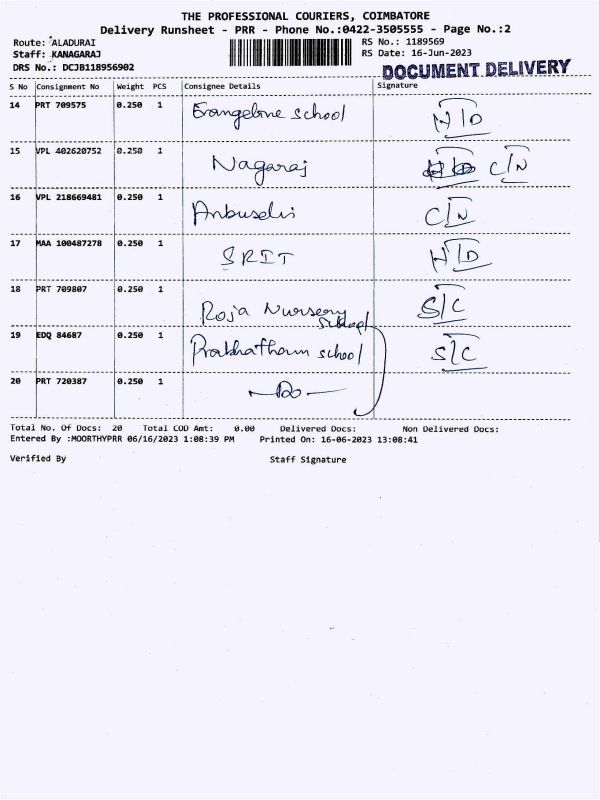 THE PROFESSIONAL COURIERS, COIMBATORE
Delivery Runsheet - PRR - Phone No.:0422-3505555 - Page No.:2
Route: ALADURAI RS No.: 1189569
Staff: KANAGARAJ RS Date: 16-Jun-2023
DRS No.: DCJB118956902 DOCUMENT DELIVERY
S No Consignment No Weight PCS Consignee Details Signature
14 PRT 709575 0.250 1 Evangeline school N/D
15 VPL 402620752 0.250 1 Nagaraj C/N
16 VPL 218669481 0.250 1 Anbuselvi C/N
17 MAA 100487278 0.250 1 SRIT N/D
18 PRT 709807 0.250 1 Roja Nursery school S/C
19 EDQ 84687 0.250 1 Prabhatham school S/C
20 PRT 720387 0.250 1 -Do-
Total No. Of Docs: 20 Total COD Amt: 0.00 Delivered Docs: Non Delivered Docs:
Entered By :MOORTHYPRR 06/16/2023 1:08:39 PM Printed On: 16-06-2023 13:08:41
Verified By Staff Signature